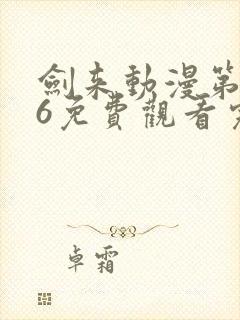 劍来動漫第
6免費觀看完
卓霜